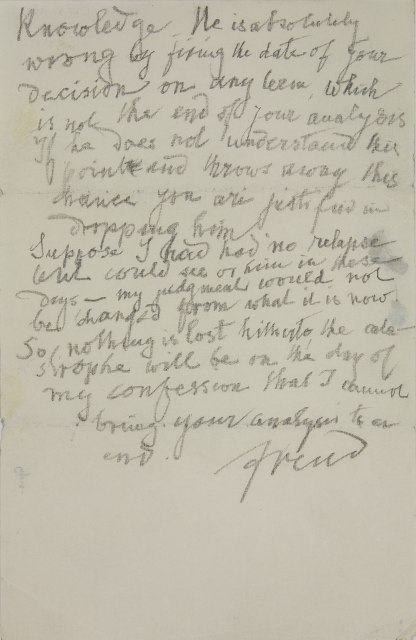 Knowledge. He is absolutely
wrong by fixing the date of your
decision on any term, which
is not the end of your analysis
If he does not understand this
point and throws away this
chance you are justified in
dropping him.
Suppose I had had no relapse
and could see him in these
days – my judgment would not
be changed from what it is now.
So, nothing is lost hitherto, the cata-
strophe will be on the day of
my confession that I cannot
bring your analysis to an
end.
freud